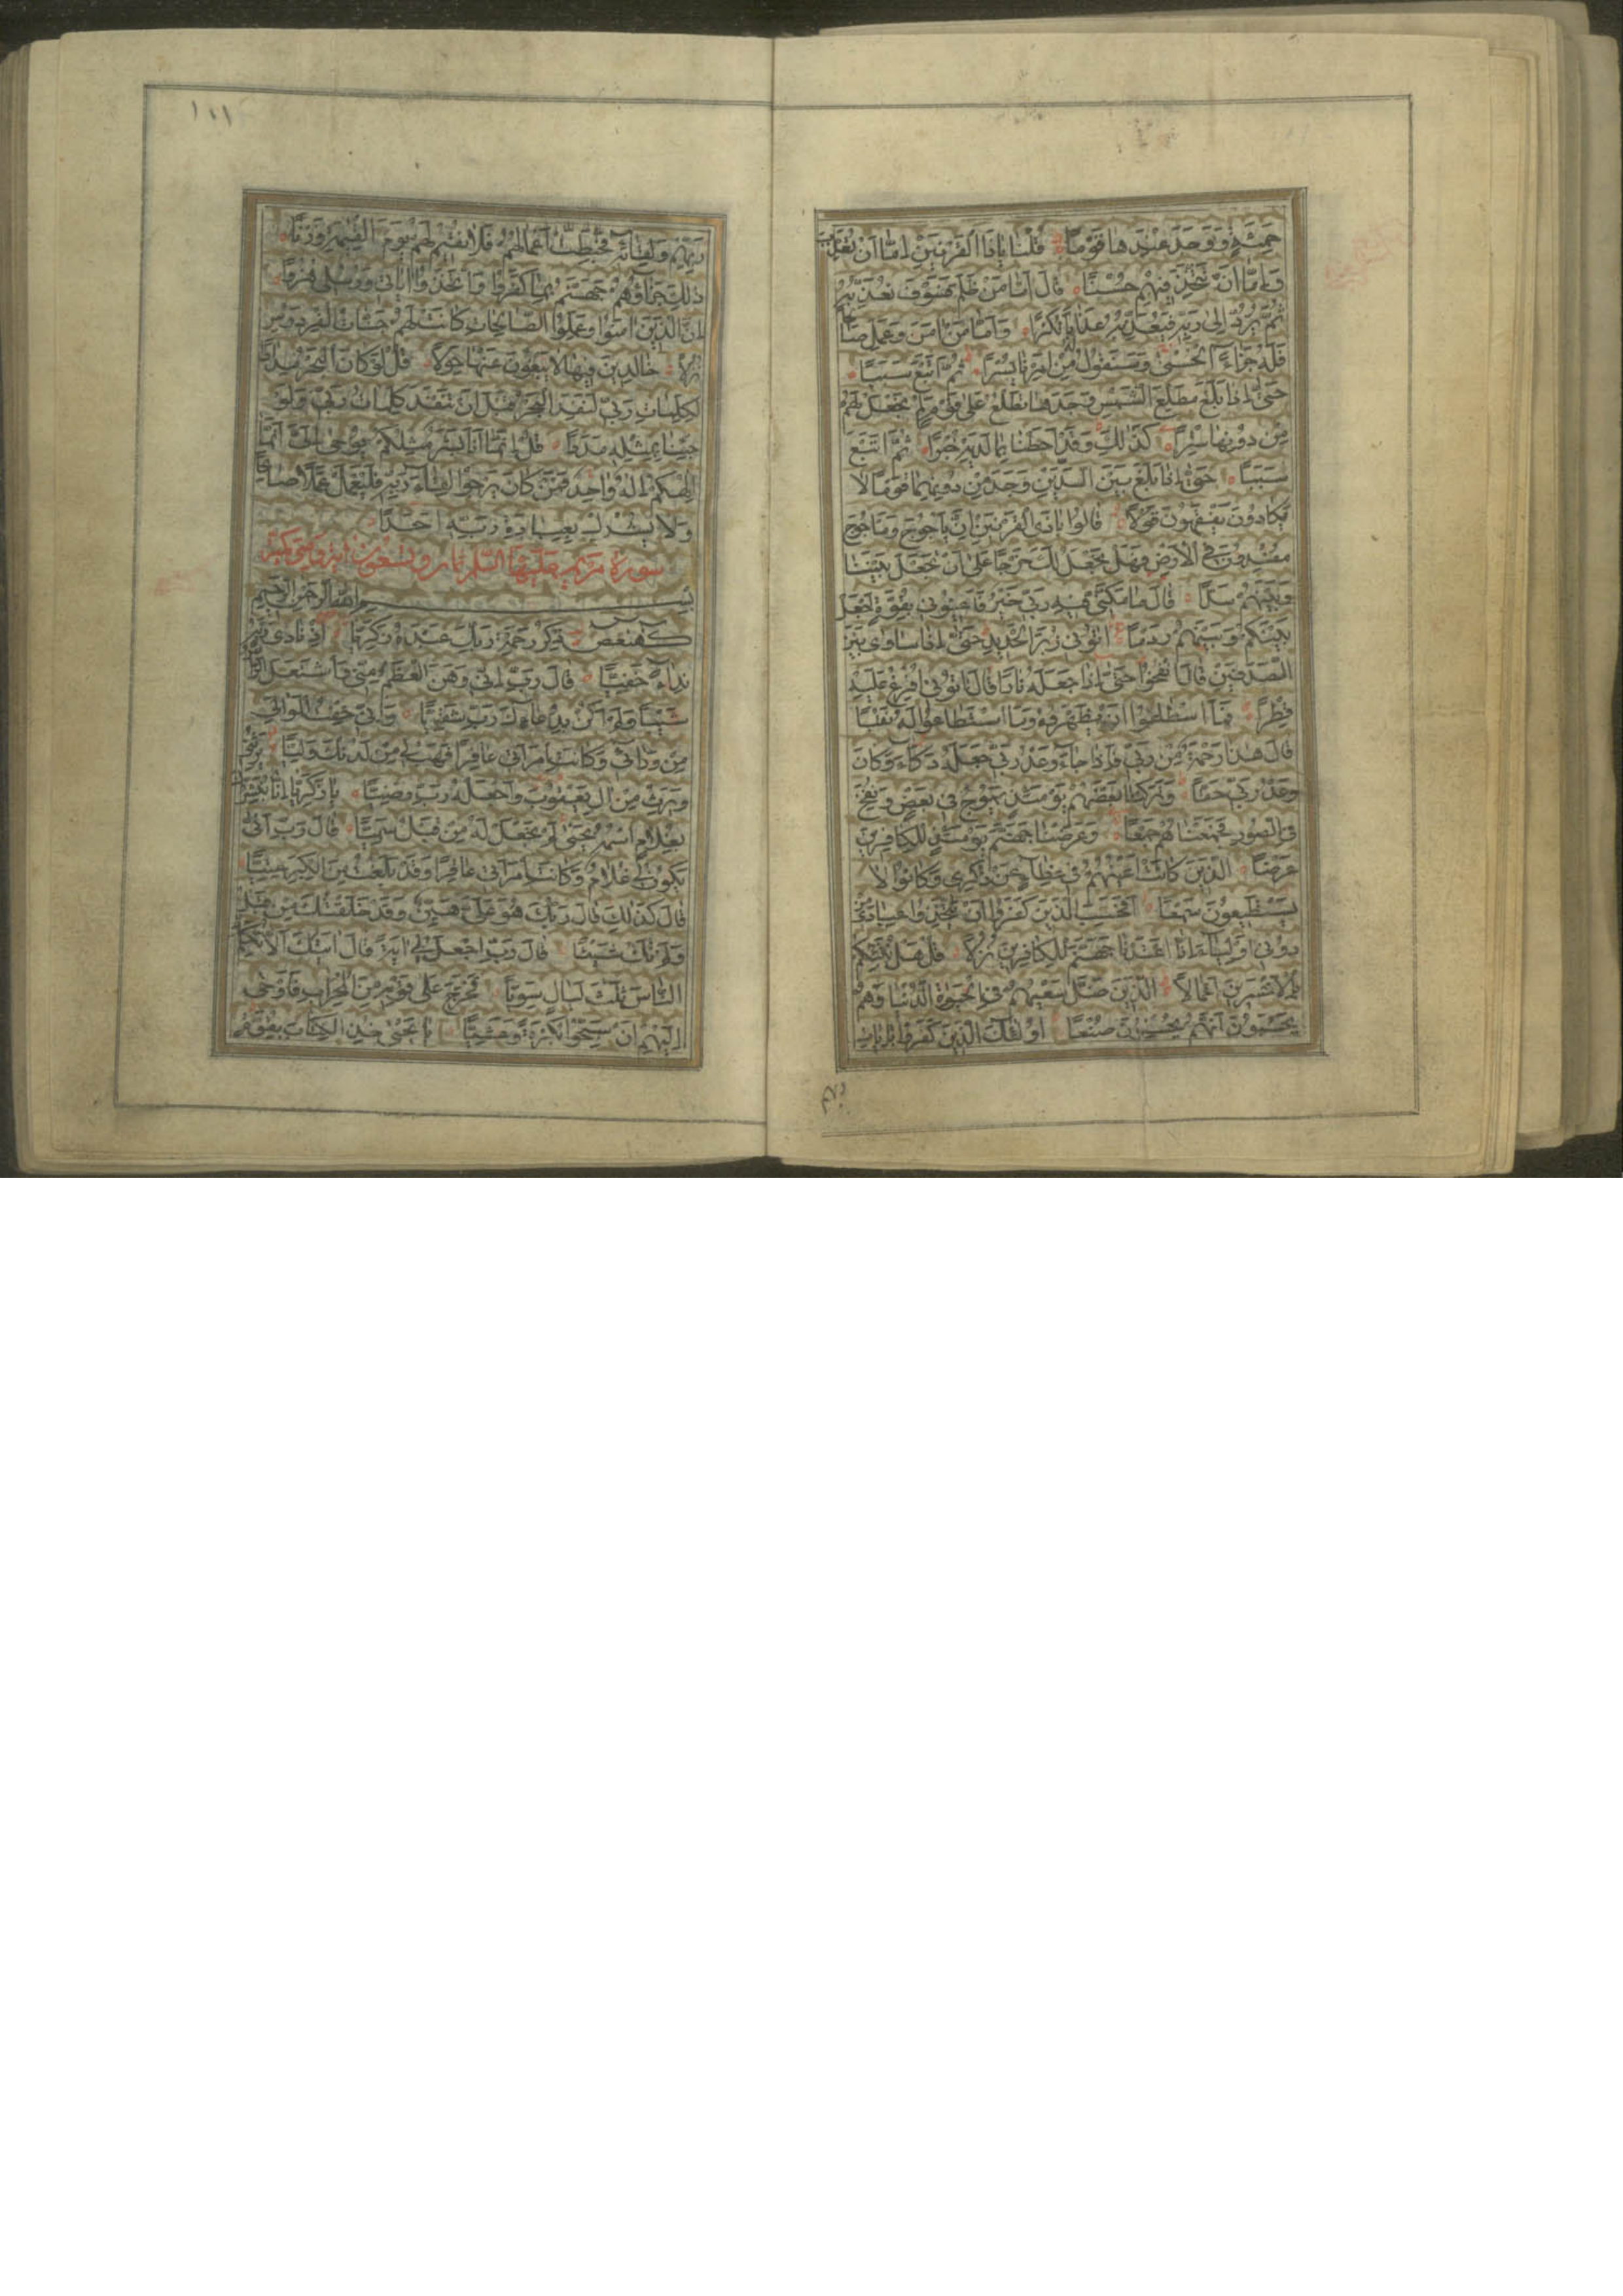 حَمِئَةٍ وَوَجَدَ عِنْدَهَا قَوْمًا قُلْنَا يَاذَا الْقَرْنَيْنِ اِمَّا اَنْ تُعَذِّبَ
وَاِمَّا اَنْ تَتَّخِذَ فِيهِمْ حُسْنًا قَالَ اَمَّا مَنْ ظَلَمَ فَسَوْفَ نُعَذِّبُهُ
ثُمَّ يُرَدُّ اِلٰى رَبِّهِ فَيُعَذِّبُهُ عَذَابًا نُكْرًا وَاَمَّا مَنْ اٰمَنَ وَعَمِلَ صَالِحًا
فَلَهُ جَزَاءً الْحُسْنٰى وَسَنَقُولُ لَهُ مِنْ اَمْرِنَا يُسْرًا ثُمَّ اَتْبَعَ سَبَبًا
حَتّٰى اِذَا بَلَغَ مَطْلِعَ الشَّمْسِ وَجَدَهَا تَطْلُعُ عَلٰى قَوْمٍ لَمْ نَجْعَلْ لَهُمْ
مِنْ دُونِهَا سِتْرًا كَذٰلِكَ وَقَدْ اَحَطْنَا بِمَا لَدَيْهِ خُبْرًا ثُمَّ اَتْبَعَ
سَبَبًا حَتّٰى اِذَا بَلَغَ بَيْنَ السَّدَّيْنِ وَجَدَ مِنْ دُونِهِمَا قَوْمًا لَا
يَكَادُونَ يَفْقَهُونَ قَوْلًا قَالُوا يَاذَا الْقَرْنَيْنِ اِنَّ يَاْجُوجَ وَمَاْجُوجَ
مُفْسِدُونَ فِى الْاَرْضِ فَهَلْ نَجْعَلُ لَكَ خَرْجًا عَلٰى اَنْ تَجْعَلَ بَيْنَنَا
وَبَيْنَهُمْ سَدًّا قَالَ مَا مَكَّنِّى فِيهِ رَبِّى خَيْرٌ فَاَعِينُونِى بِقُوَّةٍ اَجْعَلْ
بَيْنَكُمْ وَبَيْنَهُمْ رَدْمًا اٰتُونِى زُبَرَ الْحَدِيدِ حَتّٰى اِذَا سَاوٰى بَيْنَ
الصَّدَفَيْنِ قَالَ انْفُخُوا حَتّٰى اِذَا جَعَلَهُ نَارًا قَالَ اٰتُونِى اُفْرِغْ عَلَيْهِ
قِطْرًا فَمَا اسْطَاعُوا اَنْ يَظْهَرُوهُ وَمَا اسْتَطَاعُوا لَهُ نَقْبًا
قَالَ هٰذَا رَحْمَةٌ مِنْ رَبِّى فَاِذَا جَاءَ وَعْدُ رَبِّى جَعَلَهُ دَكَّاءَ وَكَانَ
وَعْدُ رَبِّى حَقًّا وَتَرَكْنَا بَعْضَهُمْ يَوْمَئِذٍ يَمُوجُ فِى بَعْضٍ وَنُفِخَ
فِى الصُّورِ فَجَمَعْنَاهُمْ جَمْعًا وَعَرَضْنَا جَهَنَّمَ يَوْمَئِذٍ لِلْكَافِرِينَ
عَرْضًا الَّذِينَ كَانَتْ اَعْيُنُهُمْ فِى غِطَاءٍ عَنْ ذِكْرِى وَكَانُوا لَا
يَسْتَطِيعُونَ سَمْعًا اَفَحَسِبَ الَّذِينَ كَفَرُوا اَنْ يَتَّخِذُوا عِبَادِى مِنْ
دُونِى اَوْلِيَاءَ اِنَّا اَعْتَدْنَا جَهَنَّمَ لِلْكَافِرِينَ نُزُلًا قُلْ هَلْ نُنَبِّئُكُمْ
بِالْاَخْسَرِينَ اَعْمَالًا الَّذِينَ ضَلَّ سَعْيُهُمْ فِى الْحَيٰوةِ الدُّنْيَا وَهُمْ
يَحْسَبُونَ اَنَّهُمْ يُحْسِنُونَ صُنْعًا اُولٰئِكَ الَّذِينَ كَفَرُوا بِاٰيَاتِ
ربهم
١١١
رَبِّهِمْ وَلِقَائِهِ فَحَبِطَتْ اَعْمَالُهُمْ فَلَا نُقِيمُ لَهُمْ يَوْمَ الْقِيٰمَةِ وَزْنًا
ذٰلِكَ جَزَاؤُهُمْ جَهَنَّمُ بِمَا كَفَرُوا وَاتَّخَذُوا اٰيَاتِى وَرُسُلِى هُزُوًا
اِنَّ الَّذِينَ اٰمَنُوا وَعَمِلُوا الصَّالِحَاتِ كَانَتْ لَهُمْ جَنَّاتُ الْفِرْدَوْسِ
نُزُلًا خَالِدِينَ فِيهَا لَا يَبْغُونَ عَنْهَا حِوَلًا قُلْ لَوْ كَانَ الْبَحْرُ مِدَادًا
لِكَلِمَاتِ رَبِّى لَنَفِدَ الْبَحْرُ قَبْلَ اَنْ تَنْفَدَ كَلِمَاتُ رَبِّى وَلَوْ
جِئْنَا بِمِثْلِهِ مَدَدًا قُلْ اِنَّمَا اَنَا بَشَرٌ مِثْلُكُمْ يُوحٰى اِلَىَّ اَنَّمَا
اِلٰهُكُمْ اِلٰهٌ وَاحِدٌ فَمَنْ كَانَ يَرْجُوا لِقَاءَ رَبِّهِ فَلْيَعْمَلْ عَمَلًا صَالِحًا
وَلَا يُشْرِكْ بِعِبَادَةِ رَبِّهِ اَحَدًا
سورة مريم عليها السلام ثمان وتسعون اية وهى مكية
بِسْمِ اللّٰهِ الرَّحْمٰنِ الرَّحِيمِ
كٓهٰيٰعٓصٓ ذِكْرُ رَحْمَةِ رَبِّكَ عَبْدَهُ زَكَرِيَّا اِذْ نَادٰى رَبَّهُ
نِدَاءً خَفِيًّا قَالَ رَبِّ اِنِّى وَهَنَ الْعَظْمُ مِنِّى وَاشْتَعَلَ الرَّاْسُ
شَيْبًا وَلَمْ اَكُنْ بِدُعَائِكَ رَبِّ شَقِيًّا وَاِنِّى خِفْتُ الْمَوَالِىَ
مِنْ وَرَائِى وَكَانَتِ امْرَاَتِى عَاقِرًا فَهَبْ لِى مِنْ لَدُنْكَ وَلِيًّا يَرِثُنِى
وَيَرِثُ مِنْ اٰلِ يَعْقُوبَ وَاجْعَلْهُ رَبِّ رَضِيًّا يَا زَكَرِيَّا اِنَّا نُبَشِّرُكَ
بِغُلَامٍ اسْمُهُ يَحْيٰى لَمْ نَجْعَلْ لَهُ مِنْ قَبْلُ سَمِيًّا قَالَ رَبِّ اَنّٰى
يَكُونُ لِى غُلَامٌ وَكَانَتِ امْرَاَتِى عَاقِرًا وَقَدْ بَلَغْتُ مِنَ الْكِبَرِ عِتِيًّا
قَالَ كَذٰلِكَ قَالَ رَبُّكَ هُوَ عَلَىَّ هَيِّنٌ وَقَدْ خَلَقْتُكَ مِنْ قَبْلُ
وَلَمْ تَكُ شَيْئًا قَالَ رَبِّ اجْعَلْ لِى اٰيَةً قَالَ اٰيَتُكَ اَلَّا تُكَلِّمَ
النَّاسَ ثَلٰثَ لَيَالٍ سَوِيًّا فَخَرَجَ عَلٰى قَوْمِهِ مِنَ الْمِحْرَابِ فَاَوْحٰى
اِلَيْهِمْ اَنْ سَبِّحُوا بُكْرَةً وَعَشِيًّا يَا يَحْيٰى خُذِ الْكِتَابَ بِقُوَّةٍ